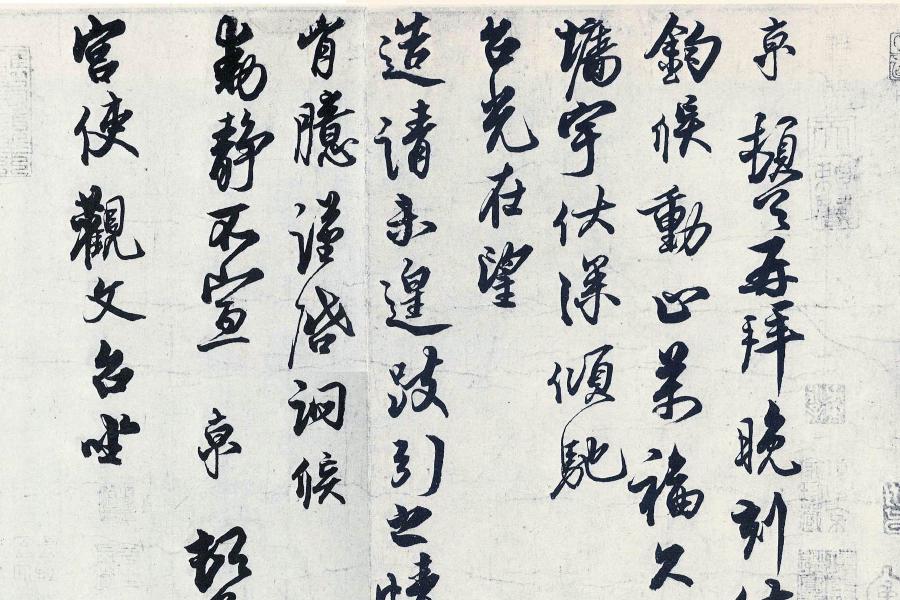 京 頓首再拜晚刻
鈞候動止萬福久
墉宇伏深傾馳
台光在望
造請未遑跂引之情
胷臆謹啓詞候
動静不宣 京 頓
宮使觀文台坐